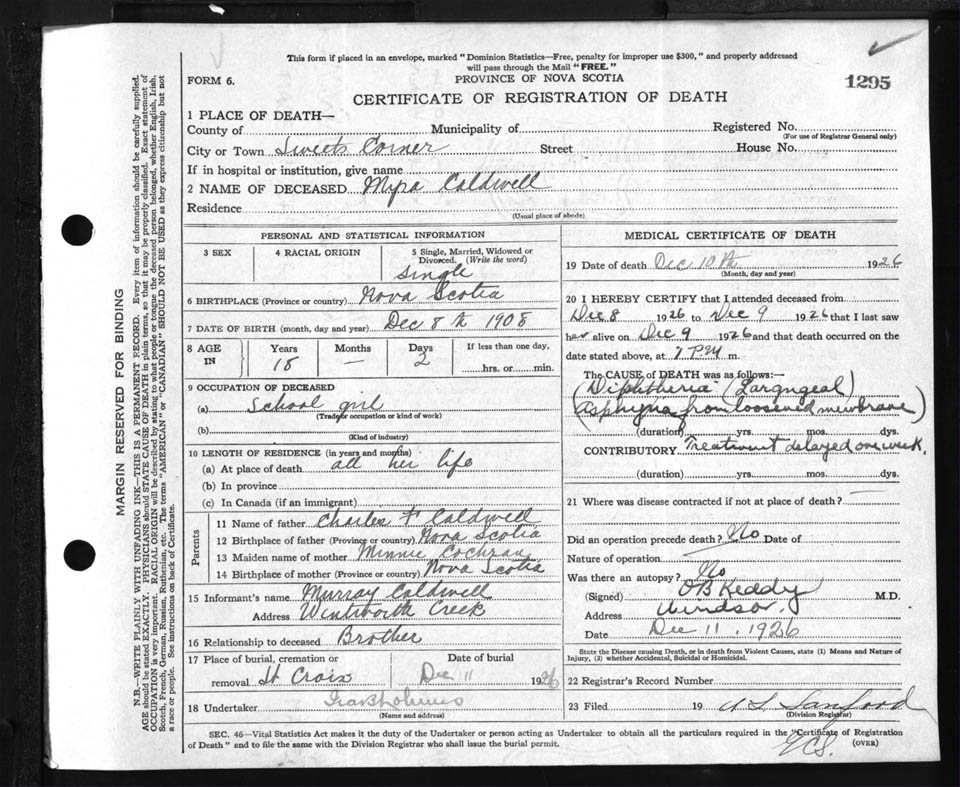 This form if placed in an envelope, marked "Dominion Statistics—Free, penalty for improper use $300," and properly addressed
will pass through the Mail "FREE."
FORM 6.
PROVINCE OF NOVA SCOTIA
1295
CERTIFICATE OF REGISTRATION OF DEATH
1 PLACE OF DEATH—
County of Municipality of Registered No.
(For use of Registrar General only)
City or Town Sweets Corner Street House No.
If in hospital or institution, give name
2 NAME OF DECEASED Myra Caldwell
Residence
(Usual place of abode)
PERSONAL AND STATISTICAL INFORMATION
3 SEX 4 RACIAL ORIGIN 5 Single, Married, Widowed or
Divorced. (Write the word)
Single
6 BIRTHPLACE (Province or country) Nova Scotia
7 DATE OF BIRTH (month, day and year) Dec 8th 1908
8 AGE IN Years Months Days If less than one day,
18 — 2 hrs. or min.
9 OCCUPATION OF DECEASED
(a) School girl
(Trade, occupation or kind of work)
(b)
(Kind of industry)
10 LENGTH OF RESIDENCE (in years and months)
(a) At place of death all her life
(b) In province
(c) In Canada (if an immigrant)
Parents
11 Name of father Charles F Caldwell
12 Birthplace of father (Province or country) Nova Scotia
13 Maiden name of mother Minnie Cochran
14 Birthplace of mother (Province or country) Nova Scotia
15 Informant's name Murray Caldwell
Address Wentworth Creek
16 Relationship to deceased Brother
17 Place of burial, cremation or Date of burial
removal St Croix Dec 11 1926
18 Undertaker
(Name and address)
MEDICAL CERTIFICATE OF DEATH
19 Date of death Dec 10th 1926
(Month, day and year)
20 I HEREBY CERTIFY that I attended deceased from
Dec 8 1926 to Dec 9 1926 that I last saw
her alive on Dec 9 1926 and that death occurred on the
date stated above, at 7 PM m.
The CAUSE OF DEATH was as follows:—
(Diphtheria (Laryngeal)
(Asphyxia from loosened membrane)
(duration) yrs. mos. dys.
CONTRIBUTORY Treatment delayed one week.
(duration) yrs. mos. dys.
21 Where was disease contracted if not at place of death? —
Did an operation precede death? No Date of
Nature of operation
Was there an autopsy? No
(Signed) O B Keddy M.D.
Address Windsor.
Date Dec 11, 1926
State the Disease causing Death, or in death from Violent Causes, state (1) Means and Nature of
Injury, (2) whether Accidental, Suicidal or Homicidal.
22 Registrar's Record Number
23 Filed 19 Sanford
(Division Registrar)
SEC. 46—Vital Statistics Act makes it the duty of the Undertaker or person acting as Undertaker to obtain all the particulars required in the "Certificate of Registration
of Death" and to file the same with the Division Registrar who shall issue the burial permit.
(OVER)
MARGIN RESERVED FOR BINDING
N.B.—WRITE PLAINLY WITH UNFADING INK—THIS IS A PERMANENT RECORD. Every item of information should be carefully supplied.
AGE should be stated EXACTLY. PHYSICIANS should STATE CAUSE OF DEATH in plain terms, so that it may be properly classified. Exact statement of
OCCUPATION is very important. RACIAL ORIGIN will be described by stating to what people or tongue the deceased person belonged, whether English, Irish,
Scotch, French, German, Russian, Ruthenian, etc. The terms "AMERICAN" or "CANADIAN" SHOULD NOT BE USED as they express citizenship but not
a race or people. See instructions on back of Certificate.